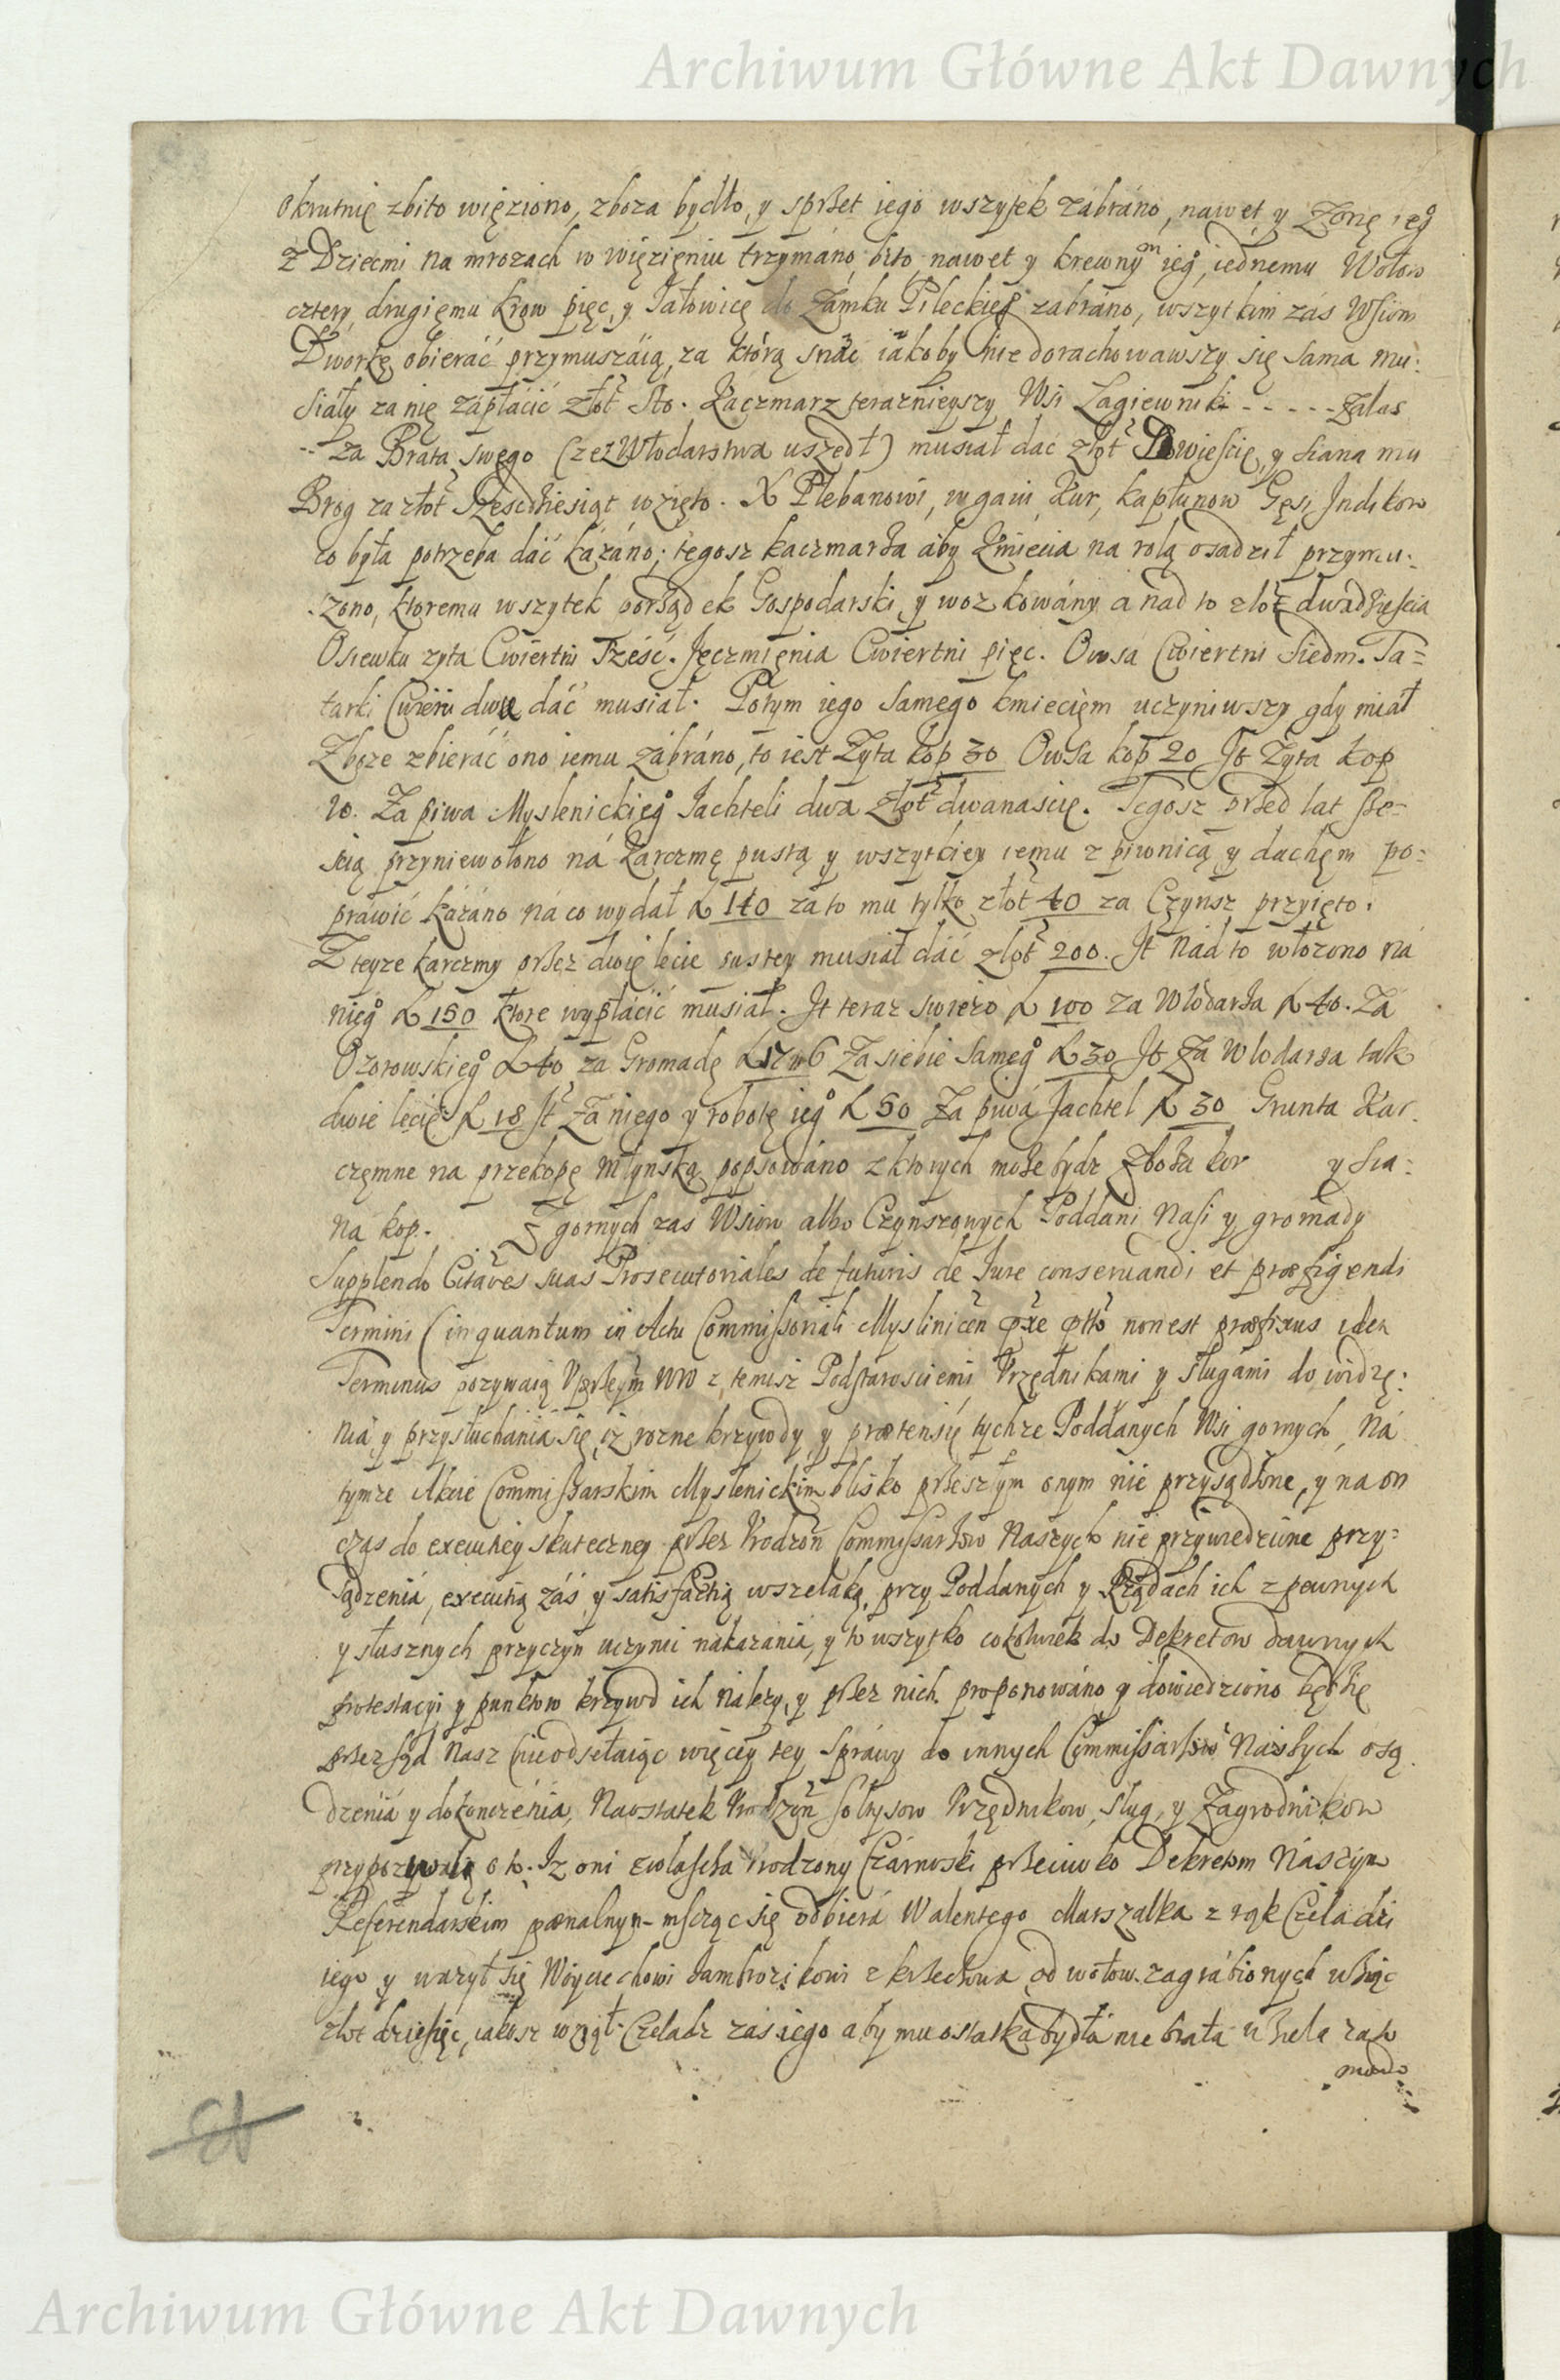 Archiwum Główne Akt Dawnych
okrutnię zbito więziono, zboza bydło, y sprzet iego wszytek zabrano, nawet y Zonę ieg°
z Dziecmi na mrozach w więzięniu trzymáno bito, nawet y krewnym ieg°, iednemu Wołow
cztery, drugięmu krow pięc, y Jałowicę do Zámku Pileckieg° zabráno, wszytkim zás Wsiom
Dworkę obieráć przymuszáią, za którą snać iákoby nie dorachowawszy się sama mu:
siáły za nię zápłácić złot sto. Kaczmarz teraznieyszy Wsi Łagiewniki - - - - - zalas
-- za Brata swęgo (ze z Włodarstwa uszedł) musiał dać złot Dwieścię, y siana mu
Brog za złot Szescdziesiąt wzięto. X Plebanowi, Kur, kapłunow Gęsi Indikow
co była potrzeba dáć kázáno; tegosz kaczmarza áby kmiecia na rolą osadził przymu:
szono, ktoremu wszytek porządek Gospodarski, y woz kowány a nad to złot dwadzieścia
Osiewku zyta Cwiertni Sześć. Jęczmięnia Cwiertni pięc. Owsá Cwiertni Siedm. Ta=
tarki Cwierti dwie dáć musiał. Potym iego samego kmiecięm uczyniwszy gdy miáł
Zboze zbieráć ono iemu zábráno, to iest Zyta kop 30 Owsa kop 20 It Zyta kop
10. Za piwa Myslenickieg° Jachteli dwa złot dwanascię. Tegosz przed lat sze=
scią przyniewolono ná karczmę pustą y wszytkiey iemu z piwnicą y dachęm po=
práwić kázáno ná co wydał ƶ 140 za to mu tylko złot 40 za Czynsz przyięto.
Z teyze karczmy przez dwie lecie pustey musiał dáć złot 200. It nád to włozono ná
nieg° ƶ 150 ktore wypłácić musiał. It teraz swiezo ƶ 100 za Włodarza ƶ 40. Zá
Ozorowskieg° ƶ 40 za Gromadę ƶ 17 6 Za siebie sameg° ƶ 30 It Za Wlodarza tak
dwie lecie ƶ 18 It Zá niego y robotę ieg° ƶ 50 Za piwá Jachtel ƶ 30 Grunta Kar
częmne na przekopę młynską popsowáno z ktorych moze bydz Zboza kop y sia:
na kop. Z gornych zas Wsiow albo Czynszowych Poddani Nasi y gromády
Supplendo Citaōes suas Prosecutoriales de futuris de Iure conseruandi et præfigendi
Termini (in quantum in Actu Commissoriali Myslinicen non est præfixus iden
Terminus pozywaią z temisz Podstarosciemi Vrzędnikami y sługami do widzę:
niá y przysłuchaniá się, iz rozne krzywdy y prætensię tychze Poddanych Wsi gornych, Ná
tymze Akcie Commissarskim Myslenickim blisko przeszłym onym nie przysądzone, y na on
czas do execuciey skuteczney przez Vrodzon Commissarzow Naszych nie przywiedzione przy=
sądzeniá, execucią záś y satisfactią wszelaką, przy Poddanych y Rządach ich z pewnych
y słusznych przyczyn uczyni nakazania, y to wszytko cokolwiek do Dekretow dawnych
protestacyi y punktow krzywd ich nalezy, y przez nich proponowáno y dowiedziono będzie
przez sąd Nasz (nie odsełaiąc więcey tey sprawy do innych Commissarzow Naszych osą
dzeniá y dokonczęnia, Naostatek Vrodzon sołtysow Vrzędnikow, sług, y Zagrodnikow
przypozywaią o to. Iz oni zwłascza Vrodzony Czárnoski przeciwko Dekretom Nászym
Referendarskim pænalnym mszcząc się odbierá Walentego Marszalka z rąk Czeladzi
iego y wazył się Woyciechowi Jambrozikowi z krzeczowa od wołow zagrábionych wziąc
złot dziesięc, iakosz wziął. Czeladz zas iego aby mu ostatka bydłá nie brała
Archiwum Główne Akt Dawnych